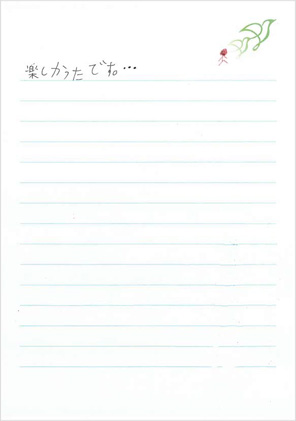 楽しかったですね…